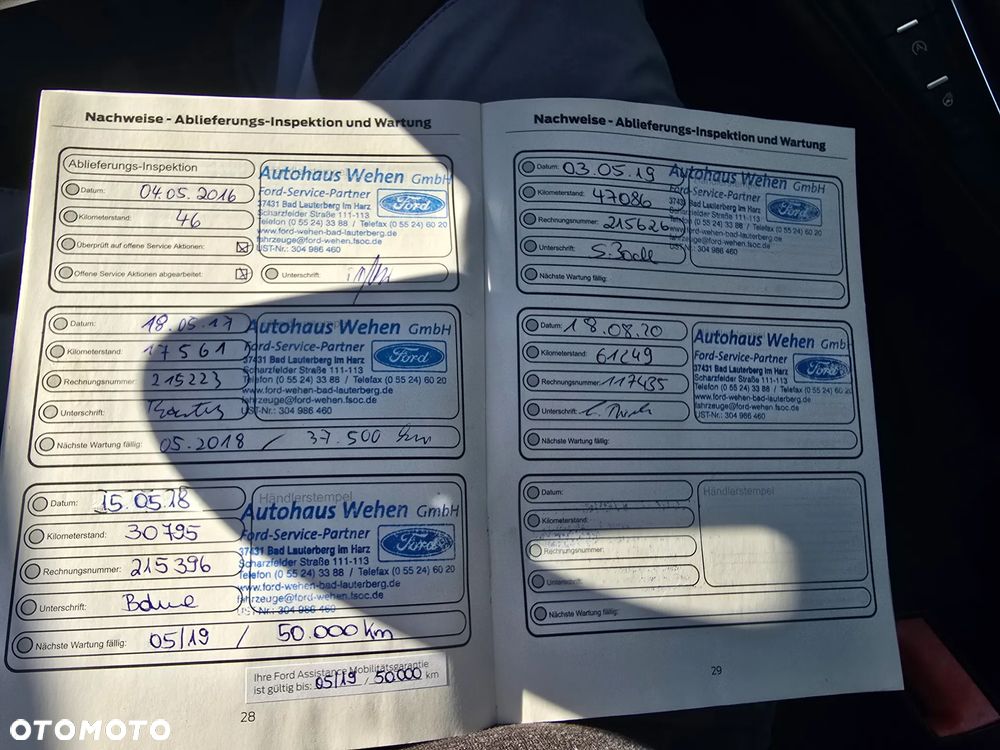 Nachweise - Ablieferungs-Inspektion und Wartung
Ablieferungs-Inspektion
Datum: 04.05.2016
Kilometerstand: 46
Überprüft auf offene Service Aktionen:
Offene Service Aktionen abgearbeitet:
Unterschrift:
Autohaus Wehen GmbH
Ford-Service-Partner
37431 Bad Lauterberg im Harz
Scharzfelder Straße 111-113
Telefon (0 55 24) 33 88 / Telefax (0 55 24) 60 20
www.ford-wehen-bad-lauterberg.de
fahrzeuge@ford-wehen.fsoc.de
UST-Nr.: 304 986 460
Ford
Datum: 18.05.17
Kilometerstand: 17561
Rechnungsnummer: 215223
Unterschrift:
Nächste Wartung fällig: 05.2018 / 37.500 km
Autohaus Wehen GmbH
Ford-Service-Partner
37431 Bad Lauterberg im Harz
Scharzfelder Straße 111-113
Telefon (0 55 24) 33 88 / Telefax (0 55 24) 60 20
www.ford-wehen-bad-lauterberg.de
fahrzeuge@ford-wehen.fsoc.de
UST-Nr.: 304 986 460
Ford
Datum: 15.05.18
Kilometerstand: 30795
Rechnungsnummer: 215396
Unterschrift:
Nächste Wartung fällig: 05/19 / 50.000 km
Händlerstempel
Autohaus Wehen GmbH
Ford-Service-Partner
37431 Bad Lauterberg im Harz
Scharzfelder Straße 111-113
Telefon (0 55 24) 33 88 / Telefax (0 55 24) 60 20
www.ford-wehen-bad-lauterberg.de
fahrzeuge@ford-wehen.fsoc.de
UST-Nr.: 304 986 460
Ford
Ihre Ford Assistance Mobilitätsgarantie
ist gültig bis: 05/19 / 50.000 km
28
Nachweise - Ablieferungs-Inspektion und Wartung
Datum: 03.05.19
Kilometerstand: 47086
Rechnungsnummer: 215626
Unterschrift:
Nächste Wartung fällig:
Autohaus Wehen GmbH
Ford-Service-Partner
37431 Bad Lauterberg im Harz
Scharzfelder Straße 111-113
Telefon (0 55 24) 33 88 / Telefax (0 55 24) 60 20
www.ford-wehen-bad-lauterberg.de
fahrzeuge@ford-wehen.fsoc.de
UST-Nr.: 304 986 460
Ford
Datum: 18.08.20
Kilometerstand: 61249
Rechnungsnummer: 117435
Unterschrift:
Nächste Wartung fällig:
Autohaus Wehen GmbH
Ford-Service-Partner
37431 Bad Lauterberg im Harz
Scharzfelder Straße 111-113
Telefon (0 55 24) 33 88 / Telefax (0 55 24) 60 20
www.ford-wehen-bad-lauterberg.de
fahrzeuge@ford-wehen.fsoc.de
UST-Nr.: 304 986 460
Ford
Datum:
Kilometerstand:
Rechnungsnummer:
Unterschrift:
Nächste Wartung fällig:
Händlerstempel
29
OTOMOTO